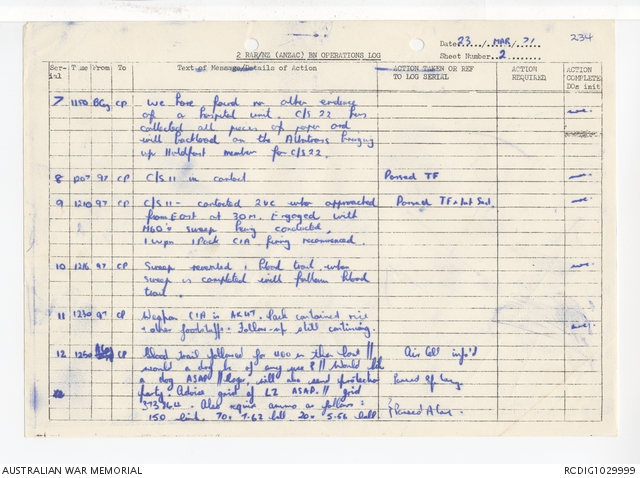 234
Date 23 / MAR / 71
2 RAR/NZ (ANZAC) BN OPERATIONS LOG
Sheet Number 2
Ser-ial Time From To Text of Message/Details of Action ACTION TAKEN OR REF TO LOG SERIAL ACTION REQUIRED ACTION COMPLETE DOs init
7 1150 BCoy CP We have found no other evidence
of a hospital unit. C/S 22 has
collected all pieces of paper and
will backload on the Albatross bringing
up Holdfast member for C/S 22.
8 97 CP C/S 11 in contact Passed TF
9 1210 97 CP C/S 11 - contacted 2VC who approached Passed TF + Int Sect.
from East at 30m. Engaged with
M60's sweep being conducted.
1 wpn 1 Pack CIA firing recommenced.
10 1216 97 CP Sweep revealed 1 blood trail when
sweep is completed will follow blood
trail.
11 1230 97 CP Weapon CIA is AK47. Pack contained rice
+ other foodstuffs. Follow-up still continuing.
12 1250 CP Blood trail followed for 400m then lost // Air Cell inf'd
would a dog be of any use? // Would like
a dog ASAP // will also send protection
party. Advise grid of LZ ASAP. // grid
Also require ammo as follows:
150 link. 70x 7.62 ball 20x 5.56 ball
AUSTRALIAN WAR MEMORIAL
RCDIG1029999